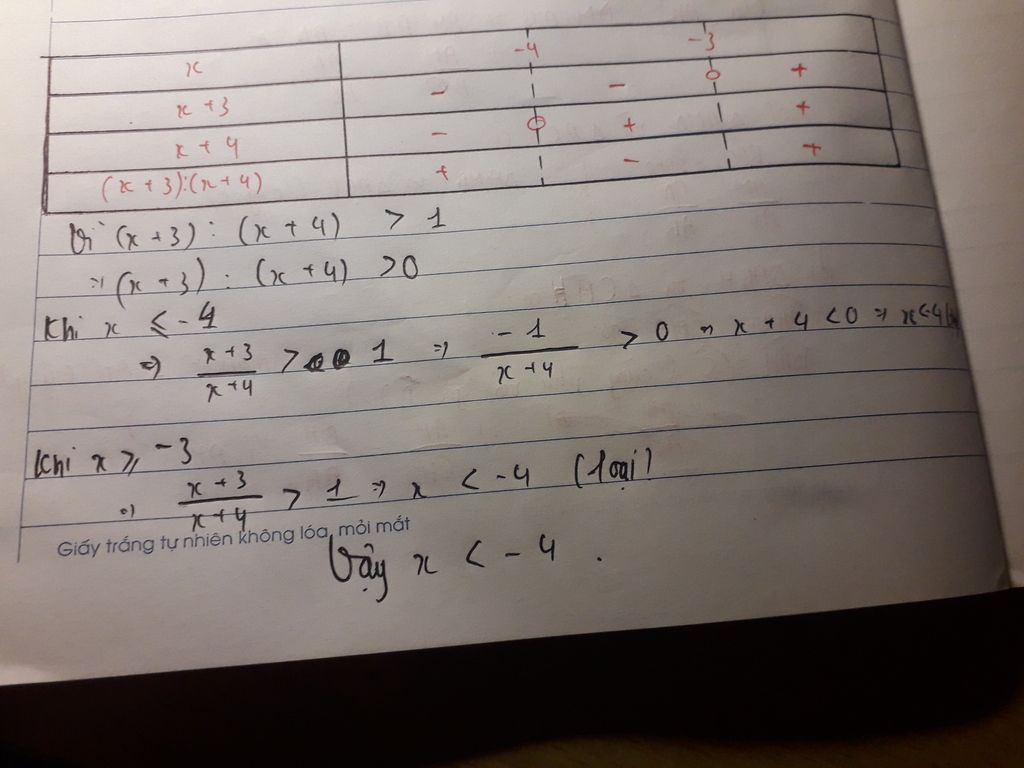 x -4 -3
x + 3 - - 0 +
x + 4 - 0 + +
(x + 3):(x + 4) + - +
Vì (x + 3) : (x + 4) > 1
⇒ (x + 3) : (x + 4) > 0
Khi x ≤ -4
⇒ x + 3 / x + 4 > 1 ⇒ -1 / x + 4 > 0 ⇒ x + 4 < 0 ⇒ x < -4
Khi x ≥ -3
⇒ x + 3 / x + 4 > 1 ⇒ x < -4 (loại)
Giấy trắng tự nhiên không lóa, mỏi mắt
Vậy x < -4 .